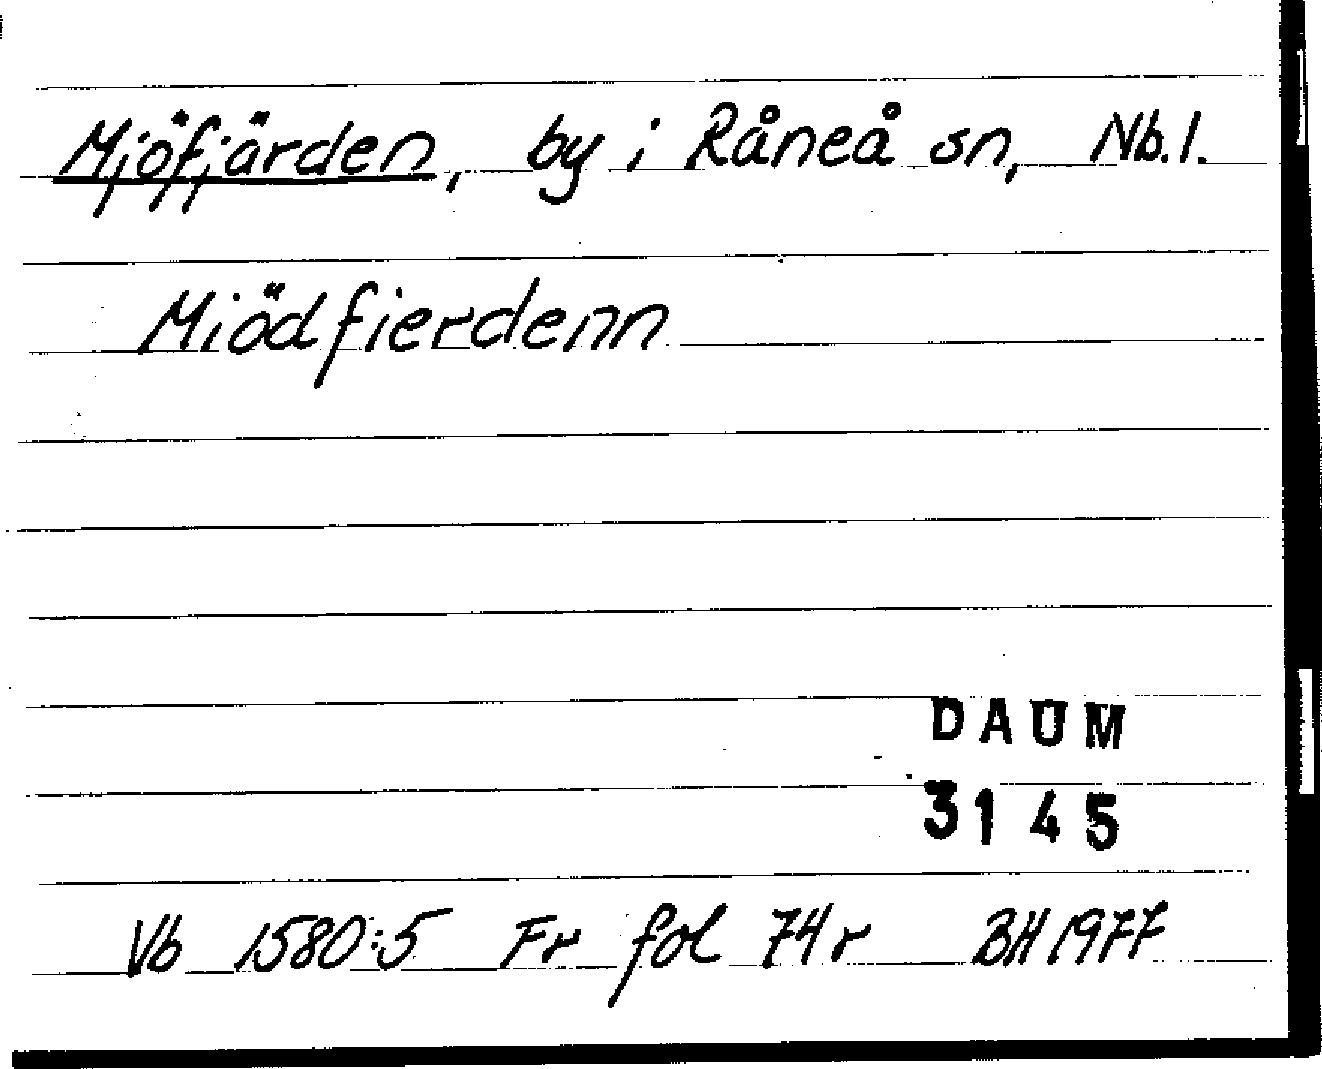 Mjöfjärden, by i Råneå sn, Nb.l.
Miödfierdenn
DAUM
3145
Vb 1580:5 Fr fol 74 r BH 1977